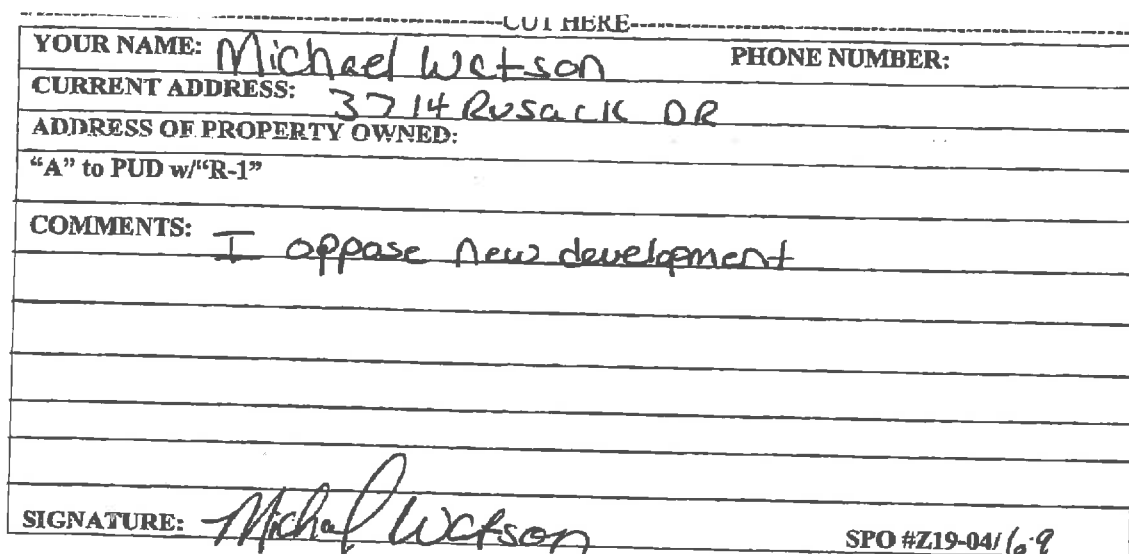 CUT HERE
YOUR NAME: Michael Watson PHONE NUMBER:
CURRENT ADDRESS: 3714 Rusack DR
ADDRESS OF PROPERTY OWNED:
"A" to PUD w/"R-1"
COMMENTS: I oppose new development
SIGNATURE: Michael Watson SPO #Z19-04/